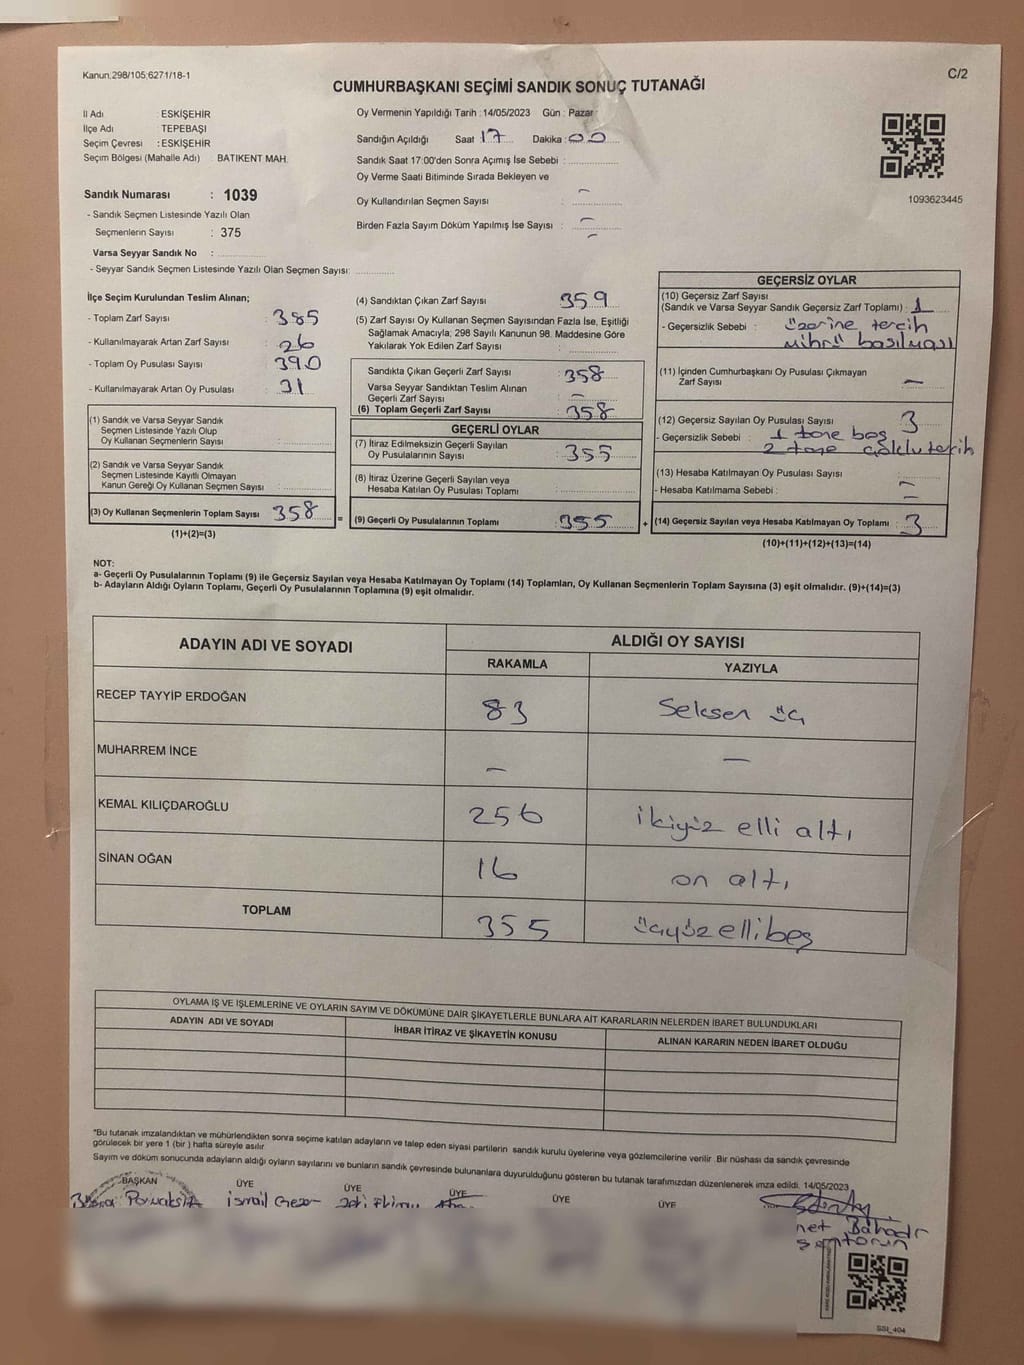 Kanun.298/105;6271/18-1
C/2
CUMHURBAŞKANI SEÇİMİ SANDIK SONUÇ TUTANAĞI
İl Adı : ESKİŞEHİR
İlçe Adı : TEPEBAŞI
Seçim Çevresi : ESKİŞEHİR
Seçim Bölgesi (Mahalle Adı) : BATIKENT MAH.
Sandık Numarası : 1039
- Sandık Seçmen Listesinde Yazılı Olan
Seçmenlerin Sayısı : 375
Varsa Seyyar Sandık No :
- Seyyar Sandık Seçmen Listesinde Yazılı Olan Seçmen Sayısı:
Oy Vermenin Yapıldığı Tarih : 14/05/2023 Gün : Pazar
Sandığın Açıldığı Saat : 17 Dakika : 00
Sandık Saat 17:00'den Sonra Açımış İse Sebebi :
Oy Verme Saati Bitiminde Sırada Bekleyen ve
Oy Kullandırılan Seçmen Sayısı : -
Birden Fazla Sayım Döküm Yapılmış İse Sayısı : -
-
1093623445
İlçe Seçim Kurulundan Teslim Alınan;
- Toplam Zarf Sayısı : 385
- Kullanılmayarak Artan Zarf Sayısı : 26
- Toplam Oy Pusulası Sayısı : 390
- Kullanılmayarak Artan Oy Pusulası : 31
(1) Sandık ve Varsa Seyyar Sandık
Seçmen Listesinde Yazılı Olup
Oy Kullanan Seçmenlerin Sayısı :
(2) Sandık ve Varsa Seyyar Sandık
Seçmen Listesinde Kayıtlı Olmayan
Kanun Gereği Oy Kullanan Seçmen Sayısı :
(3) Oy Kullanan Seçmenlerin Toplam Sayısı : 358
(1)+(2)=(3)
(4) Sandıktan Çıkan Zarf Sayısı : 359
(5) Zarf Sayısı Oy Kullanan Seçmen Sayısından Fazla İse, Eşitliği
Sağlamak Amacıyla; 298 Sayılı Kanunun 98. Maddesine Göre
Yakılarak Yok Edilen Zarf Sayısı :
Sandıkta Çıkan Geçerli Zarf Sayısı : 358
Varsa Seyyar Sandıktan Teslim Alınan
Geçerli Zarf Sayısı : -
(6) Toplam Geçerli Zarf Sayısı : 358
GEÇERLİ OYLAR
(7) İtiraz Edilmeksizin Geçerli Sayılan
Oy Pusulalarının Sayısı : 355
(8) İtiraz Üzerine Geçerli Sayılan veya
Hesaba Katılan Oy Pusulası Toplamı :
= (9) Geçerli Oy Pusulalarının Toplamı : 355
GEÇERSİZ OYLAR
(10) Geçersiz Zarf Sayısı
(Sandık ve Varsa Seyyar Sandık Geçersiz Zarf Toplamı) : 1
- Geçersizlik Sebebi : üzerine tercih
mührü basılması
(11) İçinden Cumhurbaşkanı Oy Pusulası Çıkmayan
Zarf Sayısı : -
(12) Geçersiz Sayılan Oy Pusulası Sayısı : 3
- Geçersizlik Sebebi : 1 tane boş
2 tane çoklu tercih
(13) Hesaba Katılmayan Oy Pusulası Sayısı : -
- Hesaba Katılmama Sebebi : -
+ (14) Geçersiz Sayılan veya Hesaba Katılmayan Oy Toplamı : 3
(10)+(11)+(12)+(13)=(14)
NOT:
a- Geçerli Oy Pusulalarının Toplamı (9) ile Geçersiz Sayılan veya Hesaba Katılmayan Oy Toplamı (14) Toplamları, Oy Kullanan Seçmenlerin Toplam Sayısına (3) eşit olmalıdır. (9)+(14)=(3)
b- Adayların Aldığı Oyların Toplamı, Geçerli Oy Pusulalarının Toplamına (9) eşit olmalıdır.
ADAYIN ADI VE SOYADI ALDIĞI OY SAYISI
RAKAMLA YAZIYLA
RECEP TAYYİP ERDOĞAN 83 Seksen üç
MUHARREM İNCE - -
KEMAL KILIÇDAROĞLU 256 ikiyüz elli altı
SİNAN OĞAN 16 on altı
TOPLAM 355 üçyüzellibeş
OYLAMA İŞ VE İŞLEMLERİNE VE OYLARIN SAYIM VE DÖKÜMÜNE DAİR ŞİKAYETLERLE BUNLARA AİT KARARLARIN NELERDEN İBARET BULUNDUKLARI
ADAYIN ADI VE SOYADI İHBAR İTİRAZ VE ŞİKAYETİN KONUSU ALINAN KARARIN NEDEN İBARET OLDUĞU
*Bu tutanak imzalandıktan ve mühürlendikten sonra seçime katılan adayların ve talep eden siyasi partilerin sandık kurulu üyelerine veya gözlemcilerine verilir. Bir nüshası da sandık çevresinde
görülecek bir yere 1 (bir) hafta süreyle asılır.
Sayım ve döküm sonucunda adayların aldığı oyların sayılarını ve bunların sandık çevresinde bulunanlara duyurulduğunu gösteren bu tutanak tarafımızdan düzenlenerek imza edildi. 14/05/2023
BAŞKAN ÜYE ÜYE ÜYE ÜYE ÜYE
İsmail
SSI_404